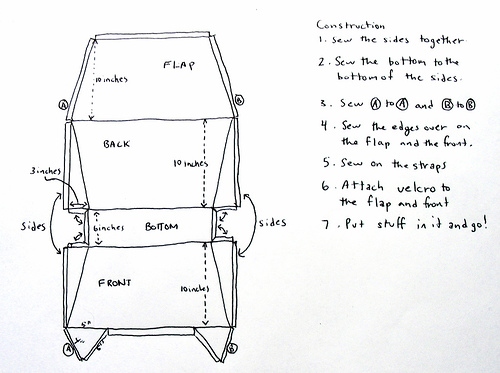 FLAP
10 inches
A
B
BACK
10 inches
3 inches
Sides
6 inches
BOTTOM
sides
FRONT
10 inches
5"
6"
A
B
Construction
1. Sew the sides together
2. Sew the bottom to the
bottom of the sides.
3. Sew A to A and B to B
4. Sew the edges over on
the flap and the front.
5. Sew on the straps
6. Attach velcro to
the flap and front
7. Put stuff in it and go!